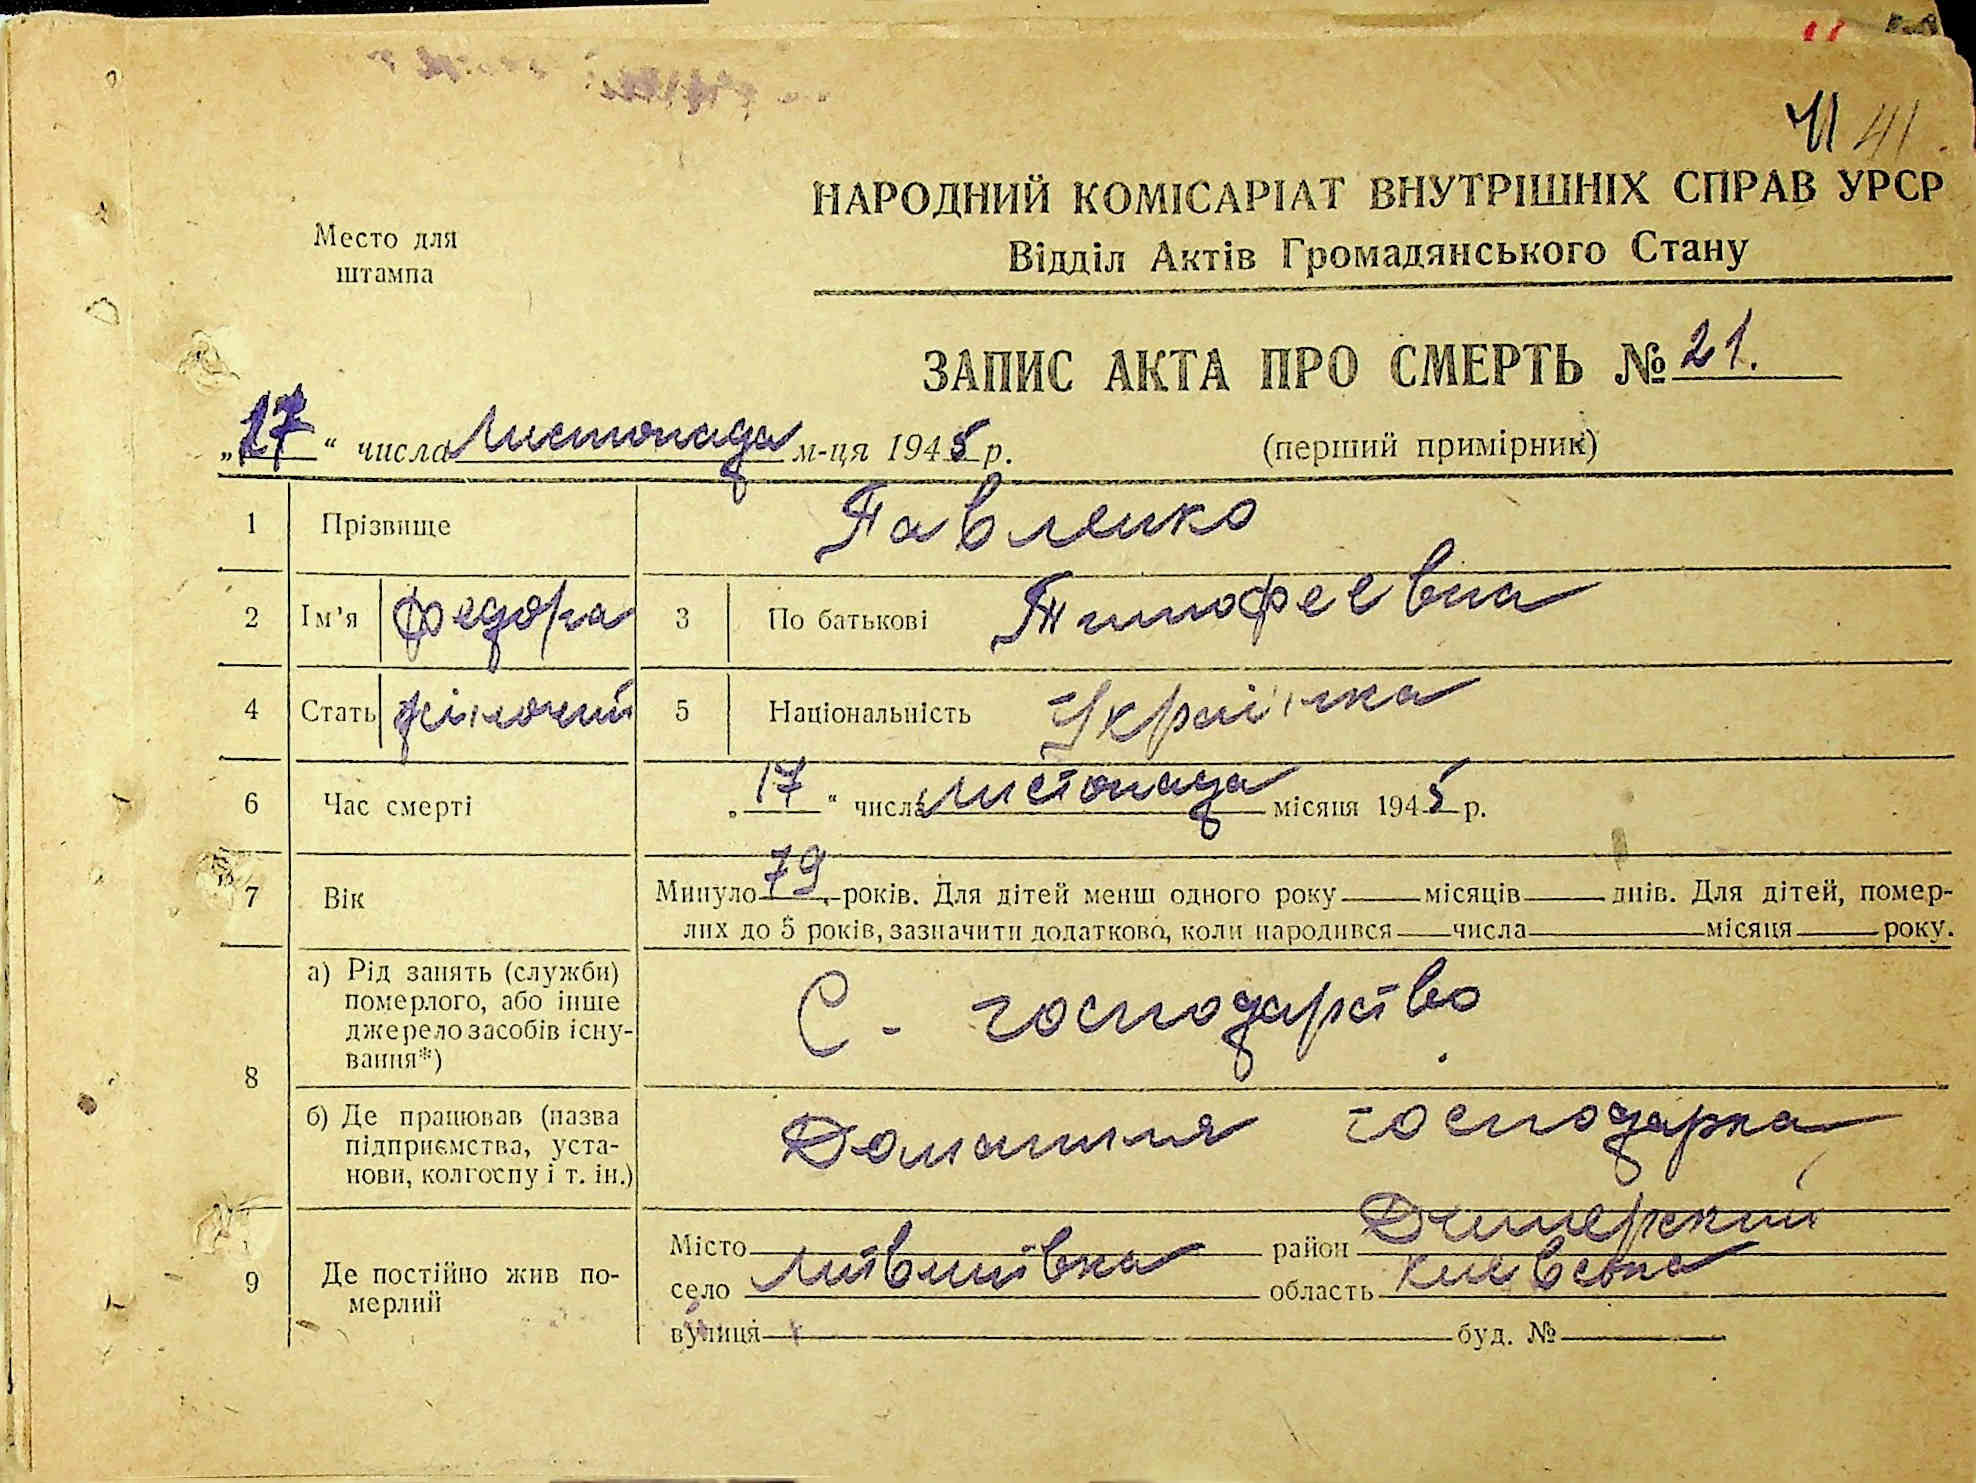 41.
НАРОДНИЙ КОМІСАРІАТ ВНУТРІШНІХ СПРАВ УРСР
Відділ Актів Громадянського Стану
Место для
штампа
ЗАПИС АКТА ПРО СМЕРТЬ № 21.
„17“ числа Листопада м-ця 1945 р.
(перший примірник)
1 Прізвище Павленко
2 Ім'я Федора 3 По батькові Тимофеевна
4 Стать жіночий 5 Національність Українка
6 Час смерті „17“ числа листопада місяця 1945 р.
7 Вік Минуло 79 років. Для дітей менш одного року місяців днів. Для дітей, помер-
лих до 5 років, зазначити додатково, коли народився числа місяця року.
8
а) Рід занять (служби)
померлого, або інше
джерело засобів існу-
вання*)
С - господарство
б) Де працював (назва
підприємства, уста-
нови, колгоспу і т. ін.)
Домашня господарка
9 Де постійно жив по-
мерлий
Місто район Димерский
село Литвинівка область Киевська
вулиця буд. №